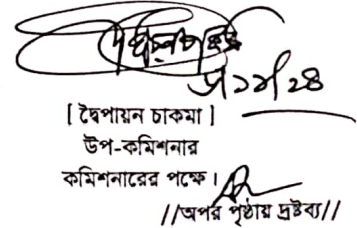 [ দ্বৈপায়ন চাকমা ]
উপ-কমিশনার
কমিশনারের পক্ষে।
//অপর পৃষ্ঠায় দ্রষ্টব্য//